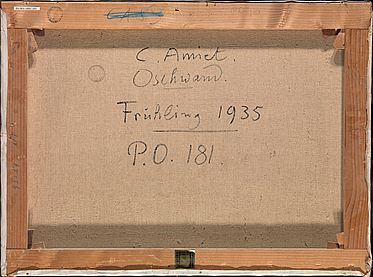 C. Amiet.
Oschwand.
Frühling 1935
P.O. 181.